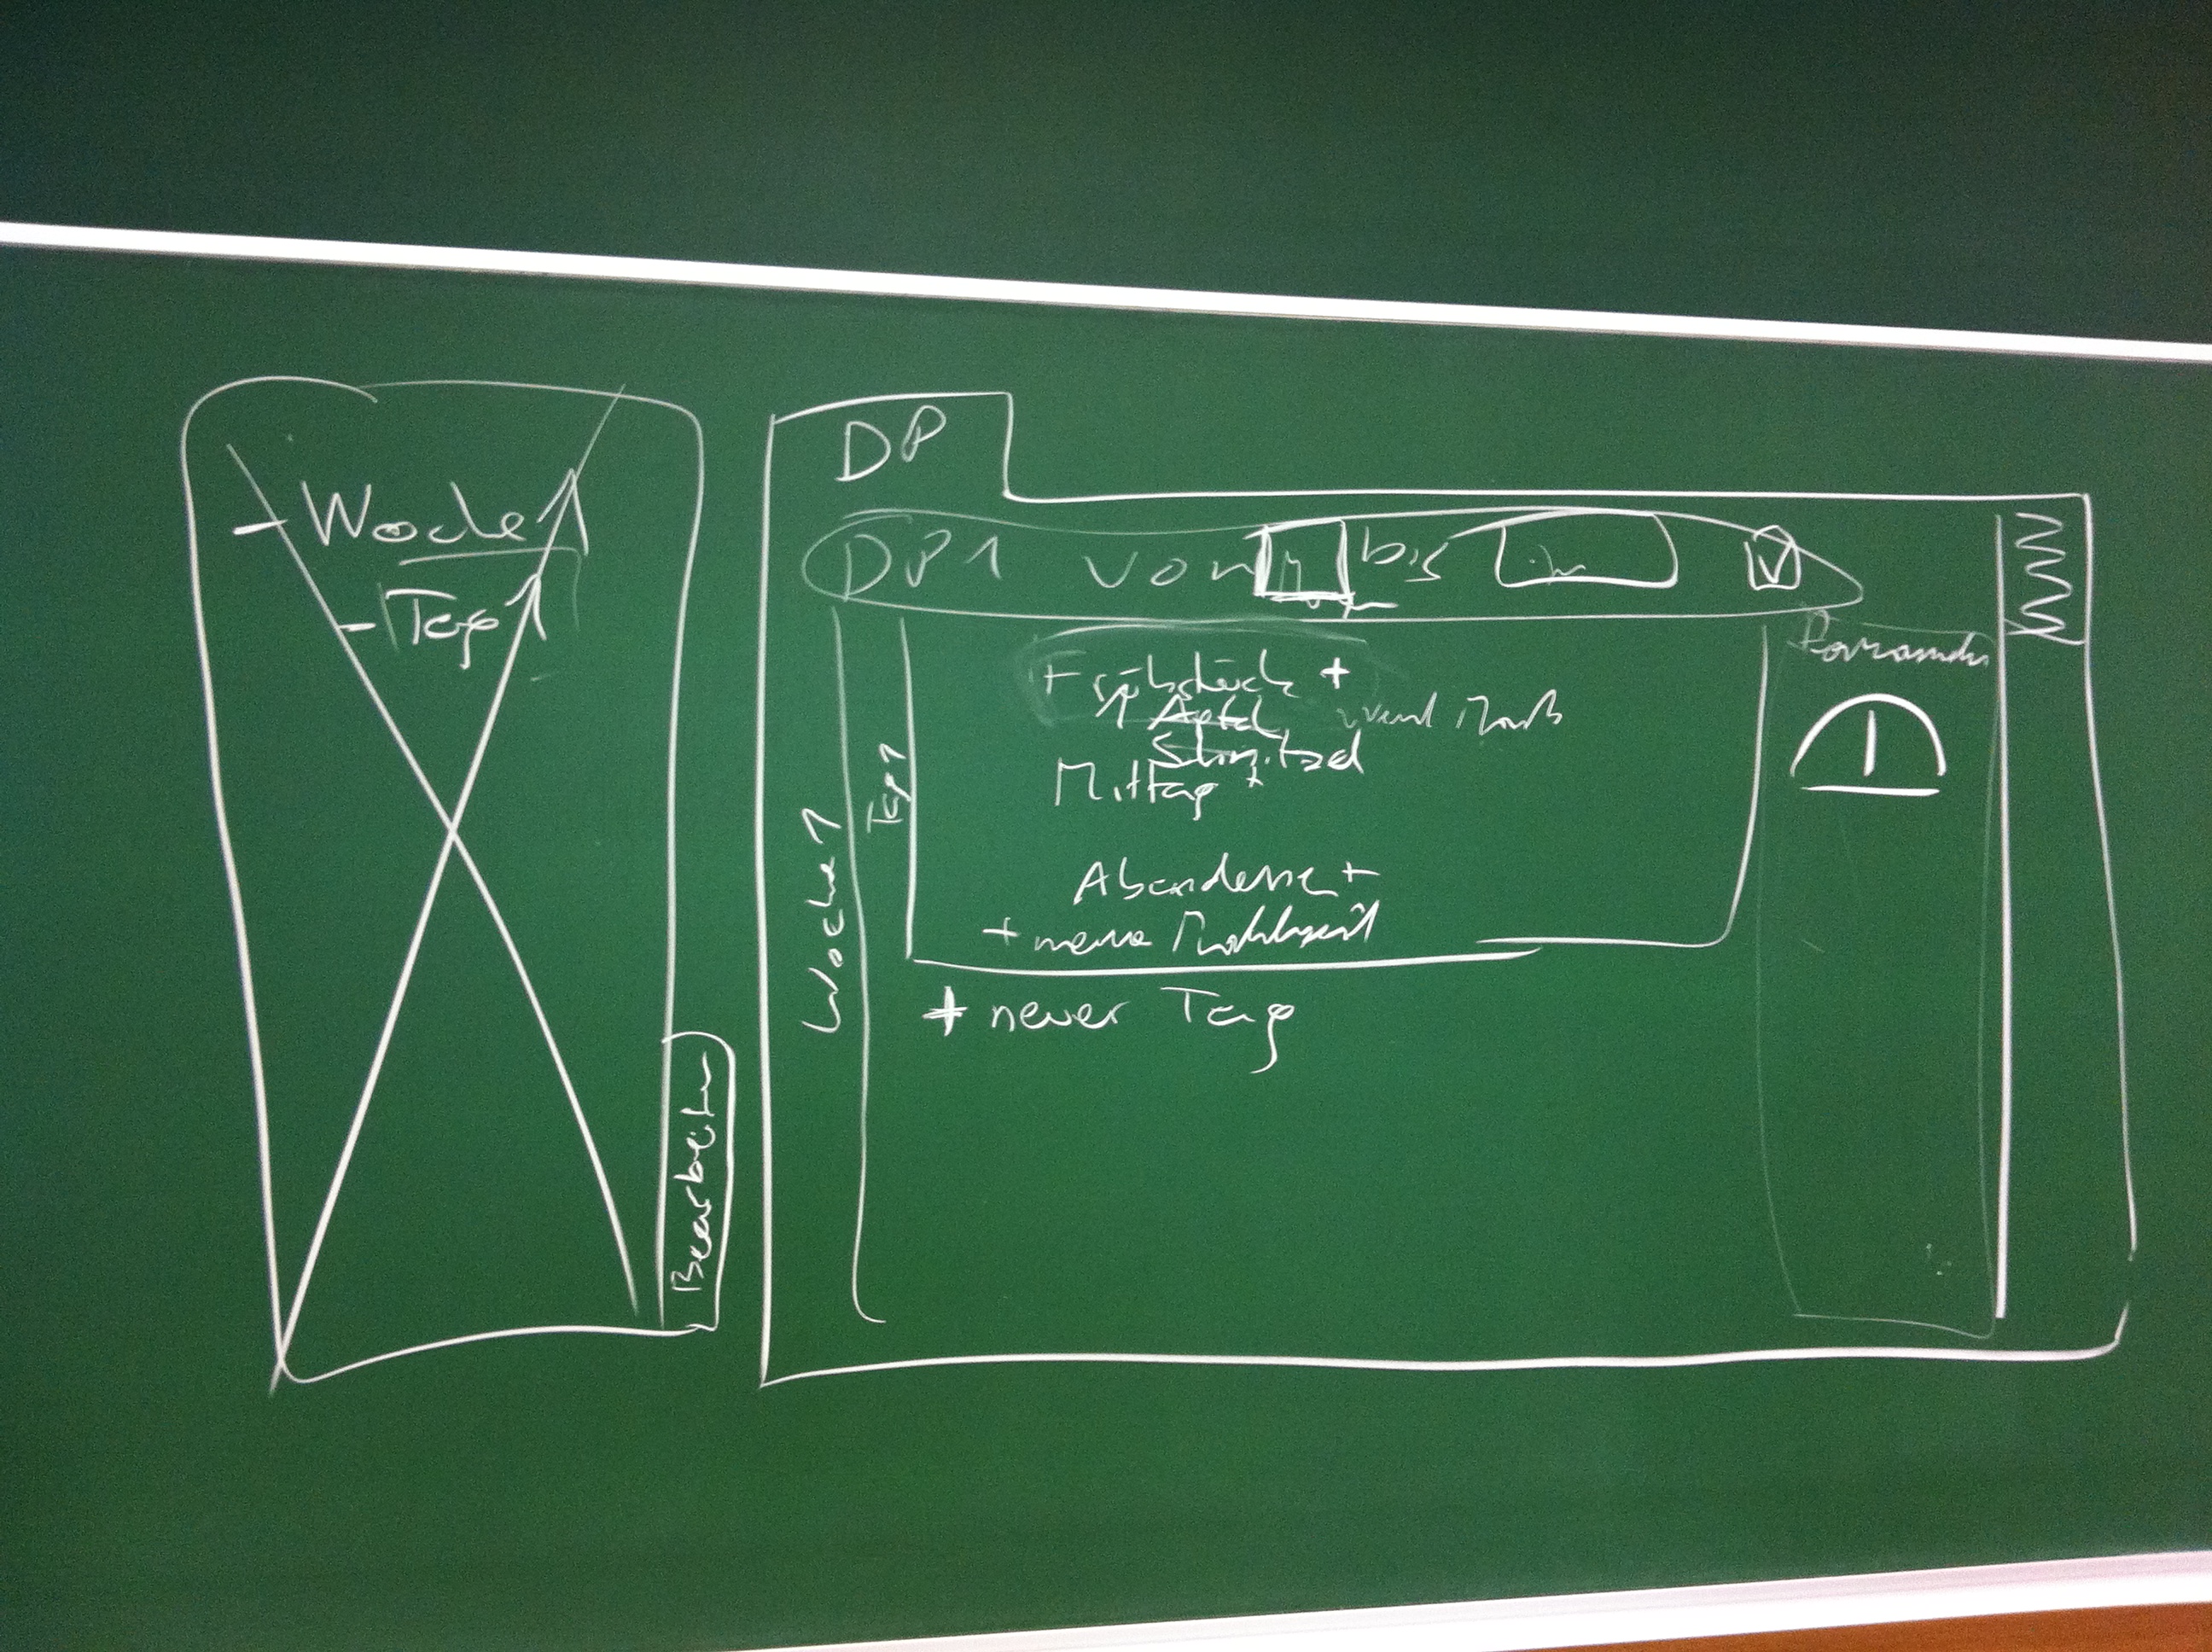 - Woche 1
- Tag 1
Bearbeiten
DP
DP1 von bis
Woche 1
Tag 1
Frühstück +
Apfel
Shnitzel
Mittag +
Abendesse +
+ neue Mahlzeit
+ neuer Tag